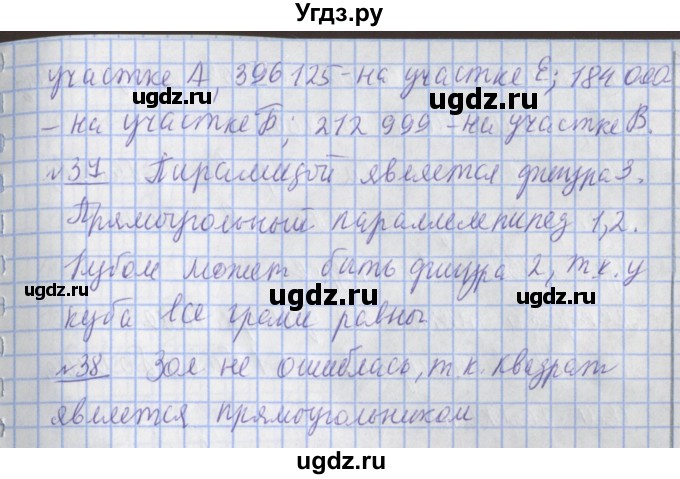 Угдз.ру
участке А, 396125 - на участке Е; 184 000
- на участке Б; 212 999 - на участке В.
№37 Пирамидой является фигура 3.
Прямоугольный параллелепипед 1,2.
Кубом может быть фигура 2, т.к. у
куба все грани равны
№38 Зоя не ошиблась, т.к. квадрат
является прямоугольником
ugdz.ru
ugdz.ru
ugdz.ru
ugdz.ru
ugdz.ru
ugdz.ru
ugdz.ru
ugdz.ru
ugdz.ru
ugdz.ru